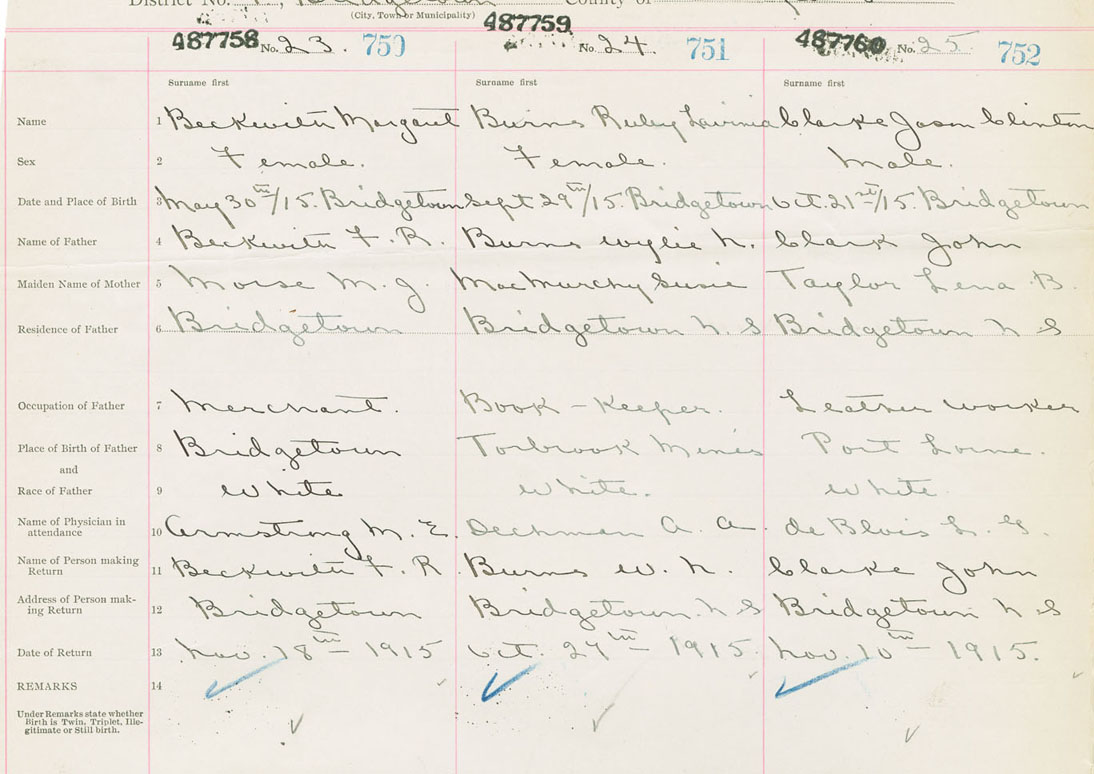 District No. , Bridgetown County of
(City, Town or Municipality)
487758 No. 23. 750 487759 No. 24. 751 487760 No. 25. 752
Surname first Surname first Surname first
Name 1 Beckwith Margaret Burns Ruby Lavinia Clarke Jason Clinton
Sex 2 Female. Female. Male.
Date and Place of Birth 3 May 30th/15. Bridgetown Sept 29th/15. Bridgetown Oct. 21st/15. Bridgetown
Name of Father 4 Beckwith F. R. Burns Wylie N. Clark John
Maiden Name of Mother 5 Morse M. J. MacMurchy Susie Taylor Lena B.
Residence of Father 6 Bridgetown Bridgetown N S Bridgetown N S
Occupation of Father 7 Merchant. Book-Keeper. Leather worker
Place of Birth of Father 8 Bridgetown Torbrook Mines Port Lorne.
and
Race of Father 9 White White. White
Name of Physician in
attendance 10 Armstrong M. E. Dechman A. A. de Blois L. G.
Name of Person making
Return 11 Beckwith F. R Burns W. N. Clarke John
Address of Person mak-
ing Return 12 Bridgetown Bridgetown. N S Bridgetown N S
Date of Return 13 Nov. 18th - 1915 Oct. 27th - 1915. Nov. 10th - 1915.
REMARKS 14
Under Remarks state whether
Birth is Twin, Triplet, Ille-
gitimate or Still birth.